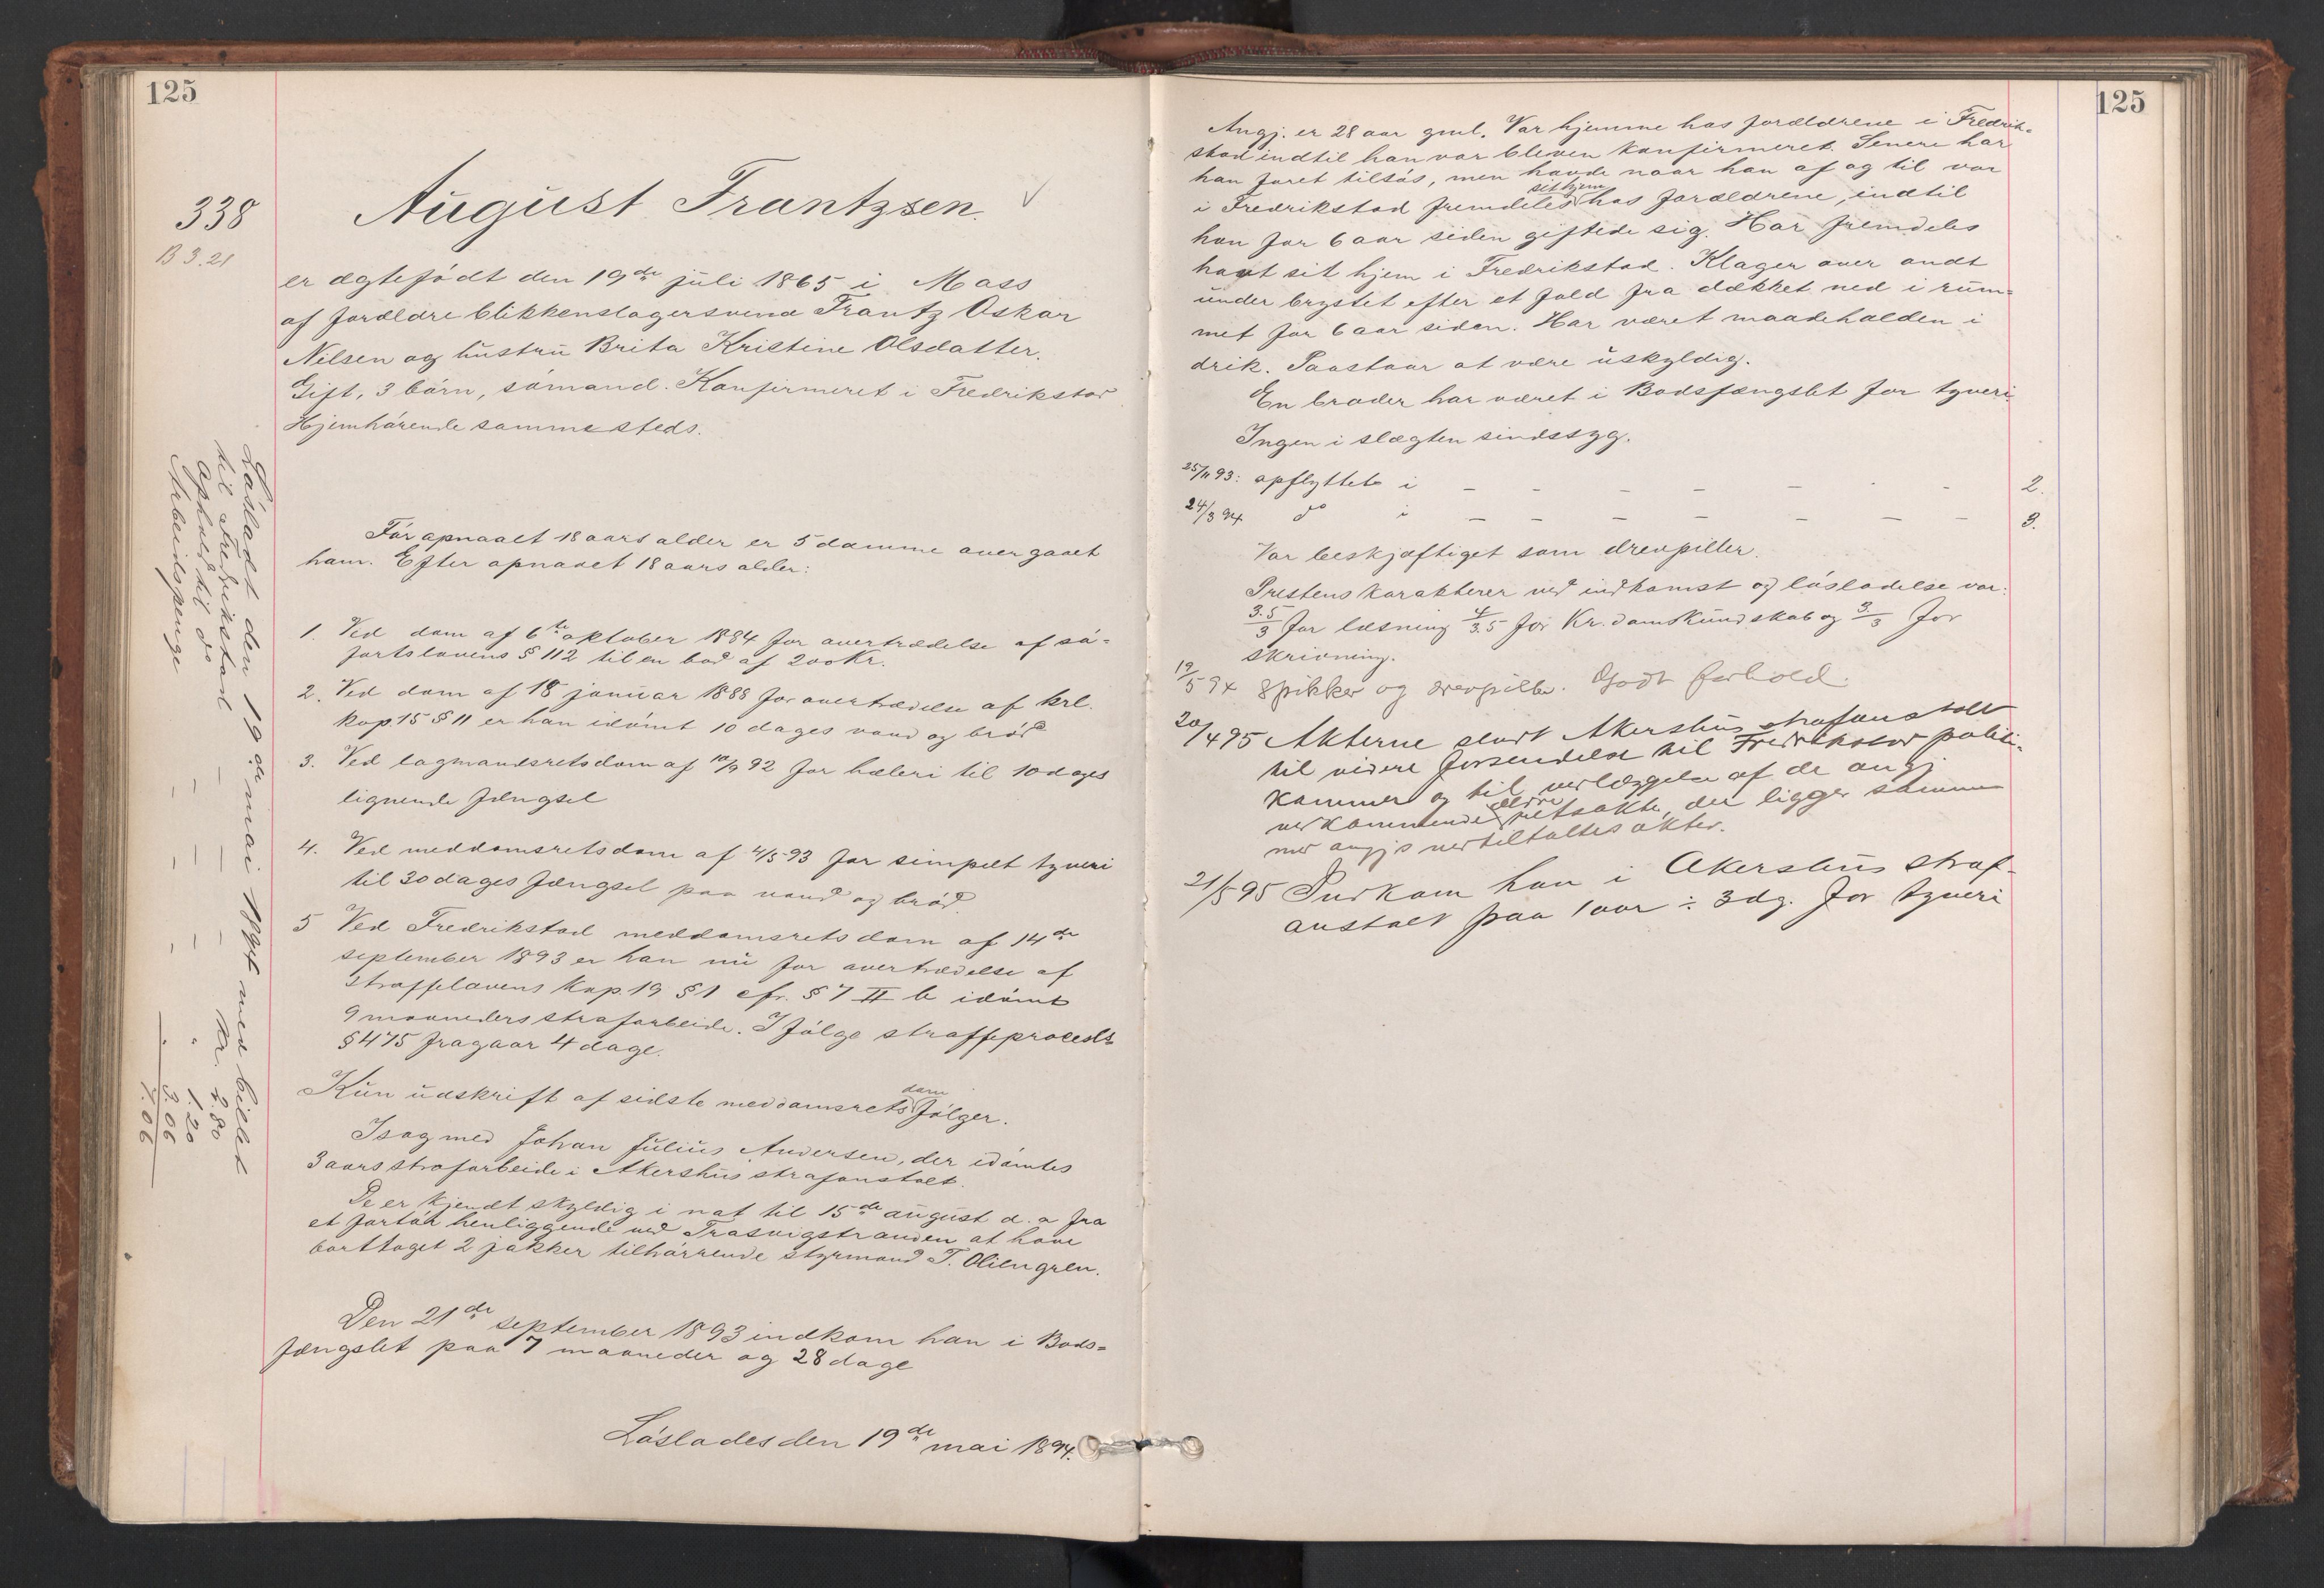 125
338
B 3.21
August Frantzsen. ✓
er ægtefødt den 19de juli 1865 i Moss
af forældre blikkenslagersvend Frantz Oskar
Nilsen og hustru Brita Kristine Olsdatter.
Gift, 3 børn, sømand. Konfirmeret i Fredrikstad
Hjemhørende sammesteds.
Før opnaaet 18 aars alder er 5 domme overgaaet
ham. Efter opnaaet 18 aars alder:
1. Ved dom af 6te oktober 1884 for overtrædelse af sø-
fartslovens § 112 til en bod af 200 Kr.
2. Ved dom af 18 januar 1888 for overtrædelse af krl.
kap. 15 § 11 er han idømt 10 dages vand og brød
3. Ved lagmandsretsdom af 10/9 92 for hæleri til 10 dages
lignende fængsel
4. Ved meddomsretsdom af 4/5 93 for simpelt tyveri
til 30 dages fængsel paa vand og brød.
5 Ved Fredrikstad meddomsrets dom af 14de
september 1893 er han nu for overtrædelse af
straffelovens kap. 19 § 1 cfr. § 7 II b idømt
9 maaneders strafarbeide. I følge straffeprocesls
§ 475 fragaar 4 dage.
Kun udskrift af sidste meddomsrets dom følger.
I sag med Johan Julius Andersen, der idømtes
3 aars strafarbeide i Akershus strafanstalt.
De er kjendt skyldig i nat til 15de august d. a fra
et fartøi henliggende ved Trosvigstranden at have
borttaget 2 jakker tilhørrende styrmand T. Oliengren.
Den 21de september 1893 indkom han i Bods-
fængslet paa 7 maaneder og 28 dage
Løslades den 19de mai 1894.
Løsladt den 19de mai 1894 med billet
til Fredrikstad – – – – Kr. 2.80
Ophold til do – – – – " 1.20
Arbeidspenge – " 3.06
7.06
125
Angj. er 28 aar gml. Var hjemme hos forældrene i Fredrik-
stad indtil han var bleven konfirmeret. Senere har
han faret tilsøs, men havde naar han af og til var
i Fredrikstad fremdeles sit hjem hos forældrene, indtil
han for 6 aar siden giftede sig. Har fremdeles
havt sit hjem i Fredrikstad. Klager over ondt
under brystet efter et fald fra dækket ned i rum-
met for 6 aar siden. Har været maadeholden i
drik. Paastaar at være uskyldig.
En broder har været i Bodsfængslet for tyveri.
Ingen i slægten sindssyg.
25/11 93: opflyttet i – – – – – – – 2.
24/3 94 do i – – – – – – – 3.
Var beskjæftiget som drevpiller.
Prestens karakterer ved indkomst og løsladelse var:
3.5/3 for læsning 4/3.5 for Kr.domskundskab og 3/3 for
skrivning.
19/5 94 Spikker og drevpiller. Godt forhold.
20/4 95 Akterne sendt Akershus strafanstalt
til videre forsendelse til Fredrikstad politi-
kammer og til vedlæggelse af de angj
vedkommende ældre retsakter, der ligger sammen
med angj's medtiltaltes akter.
21/5 95 Indkom han i Akershus straf-
anstalt paa 1 aar ÷ 3 dg. for tyveri